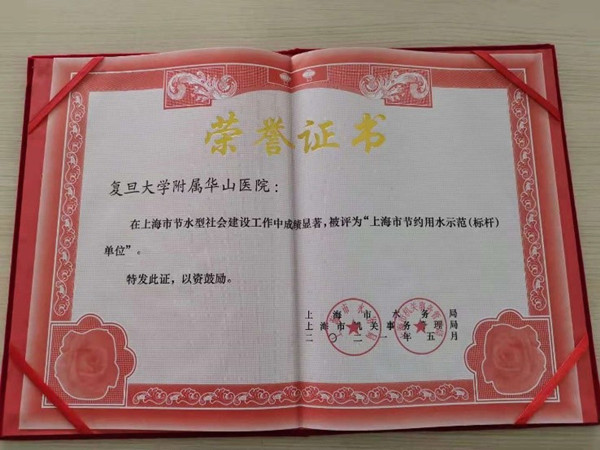 荣誉证书
复旦大学附属华山医院：
在上海市节水型社会建设工作中成绩显著，被评为“上海市节约用水示范（标杆）
单位”。
特发此证，以资鼓励。
上海市水务局
上海市机关事务管理局
二〇二一年五月